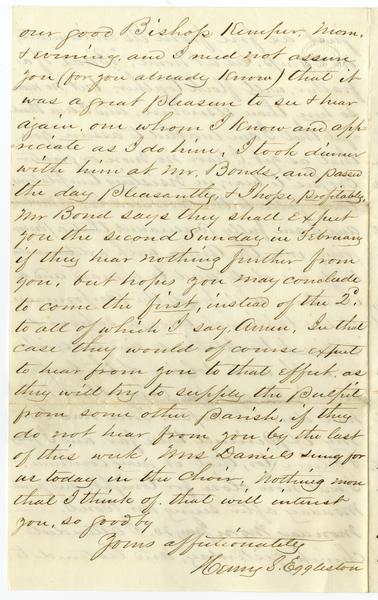 our good Bishop Kemper, Morn.
& evening, and I need not assure
you (for you already know) that it
was a great pleasure to see & hear
again, one whom I know and app-
reciate as I do him, I took dinner
with him at Mr. Bonds, and passed
the day pleasantly, & I hope, profitably,
Mr Bond says they shall expect
you the second Sunday in February
if they hear nothing further from
you, but hopes you may conclude
to come the first, instead of the 2d.
to all of which I say, Amen, In that
case they would of course expect
to hear from you to that effect, as
they will try to supply the pulpit
from some other Parish, if they
do not hear from you by the last
of this week, Mrs Daniels sung for
us today in the Choir, Nothing more
that I think of that will interest
you, so good by
Yours affectionately
Henry S. Eggleston